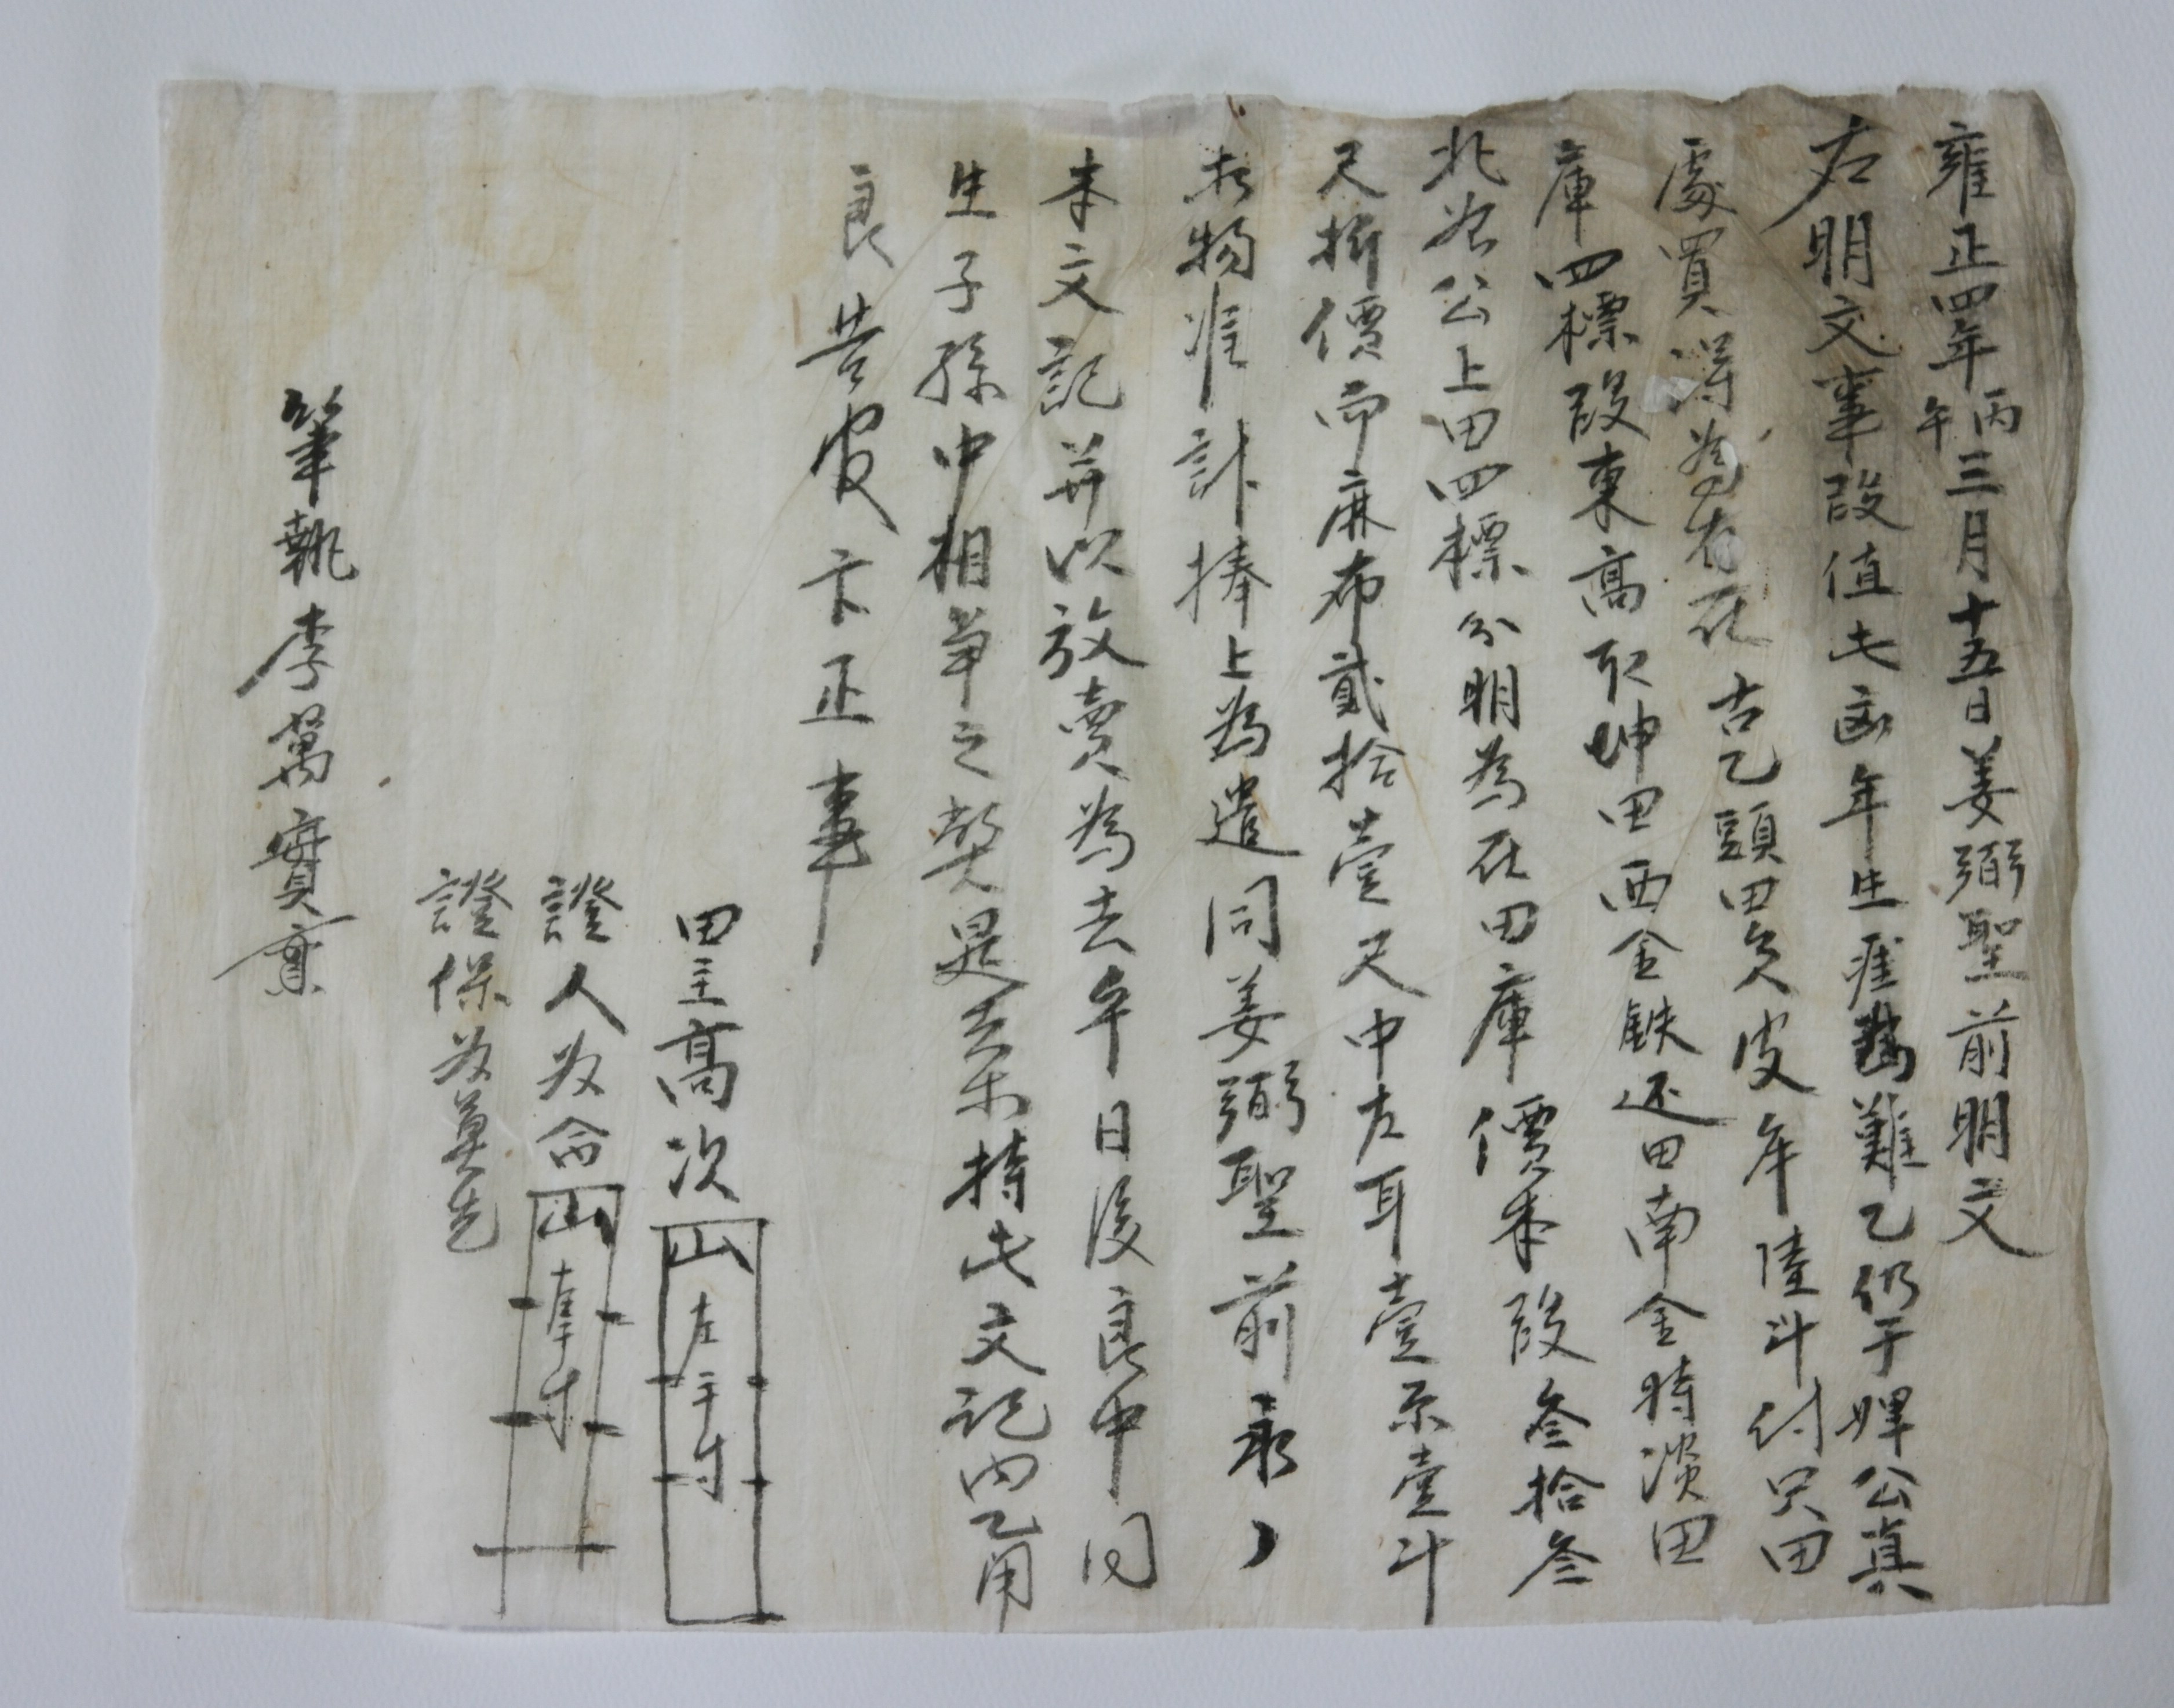 雍正四年丙午三月十五日姜弼聖前明文
右明文事段值此凶年生理難乙仍于婢公真
處買得為有在古乙頭田矣皮牟陸斗付只田
庫四標段東高取坤田西金鉄还田南金時漢田
北后公上田四標分明為在田庫價本段叁拾叁
尺折價而麻布貳拾壹尺中左耳壹示壹斗
赤物准計捧上為遣同姜弼聖前永丶
本文記并以放賣為去乎日後良中同
生子孫中相爭之獘是去等持此文記內乙用
良告官卞正事
田主高次山左手寸
證人为命山右手寸
證保为莫先
筆執李萬實